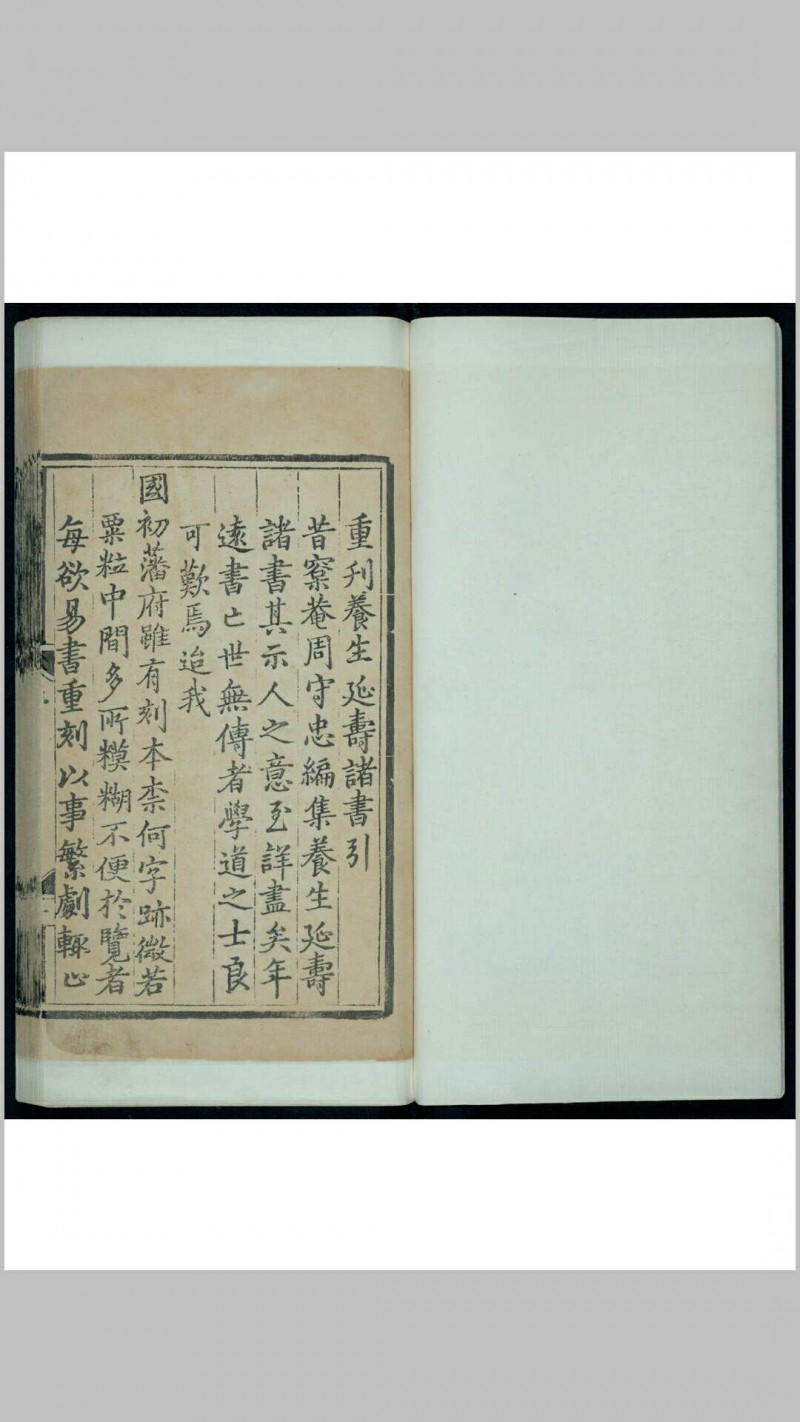 重刋養生延壽諸書引
昔寮菴周守忠編集養生延壽
諸書其示人之意至詳盡矣年
遠書亡世無傳者學道之士良
可歎焉迨我
國初藩府雖有刻本柰何字跡微若
粟粒中間多所糢糊不便於覽者
每欲易書重刻以事繁劇輙止